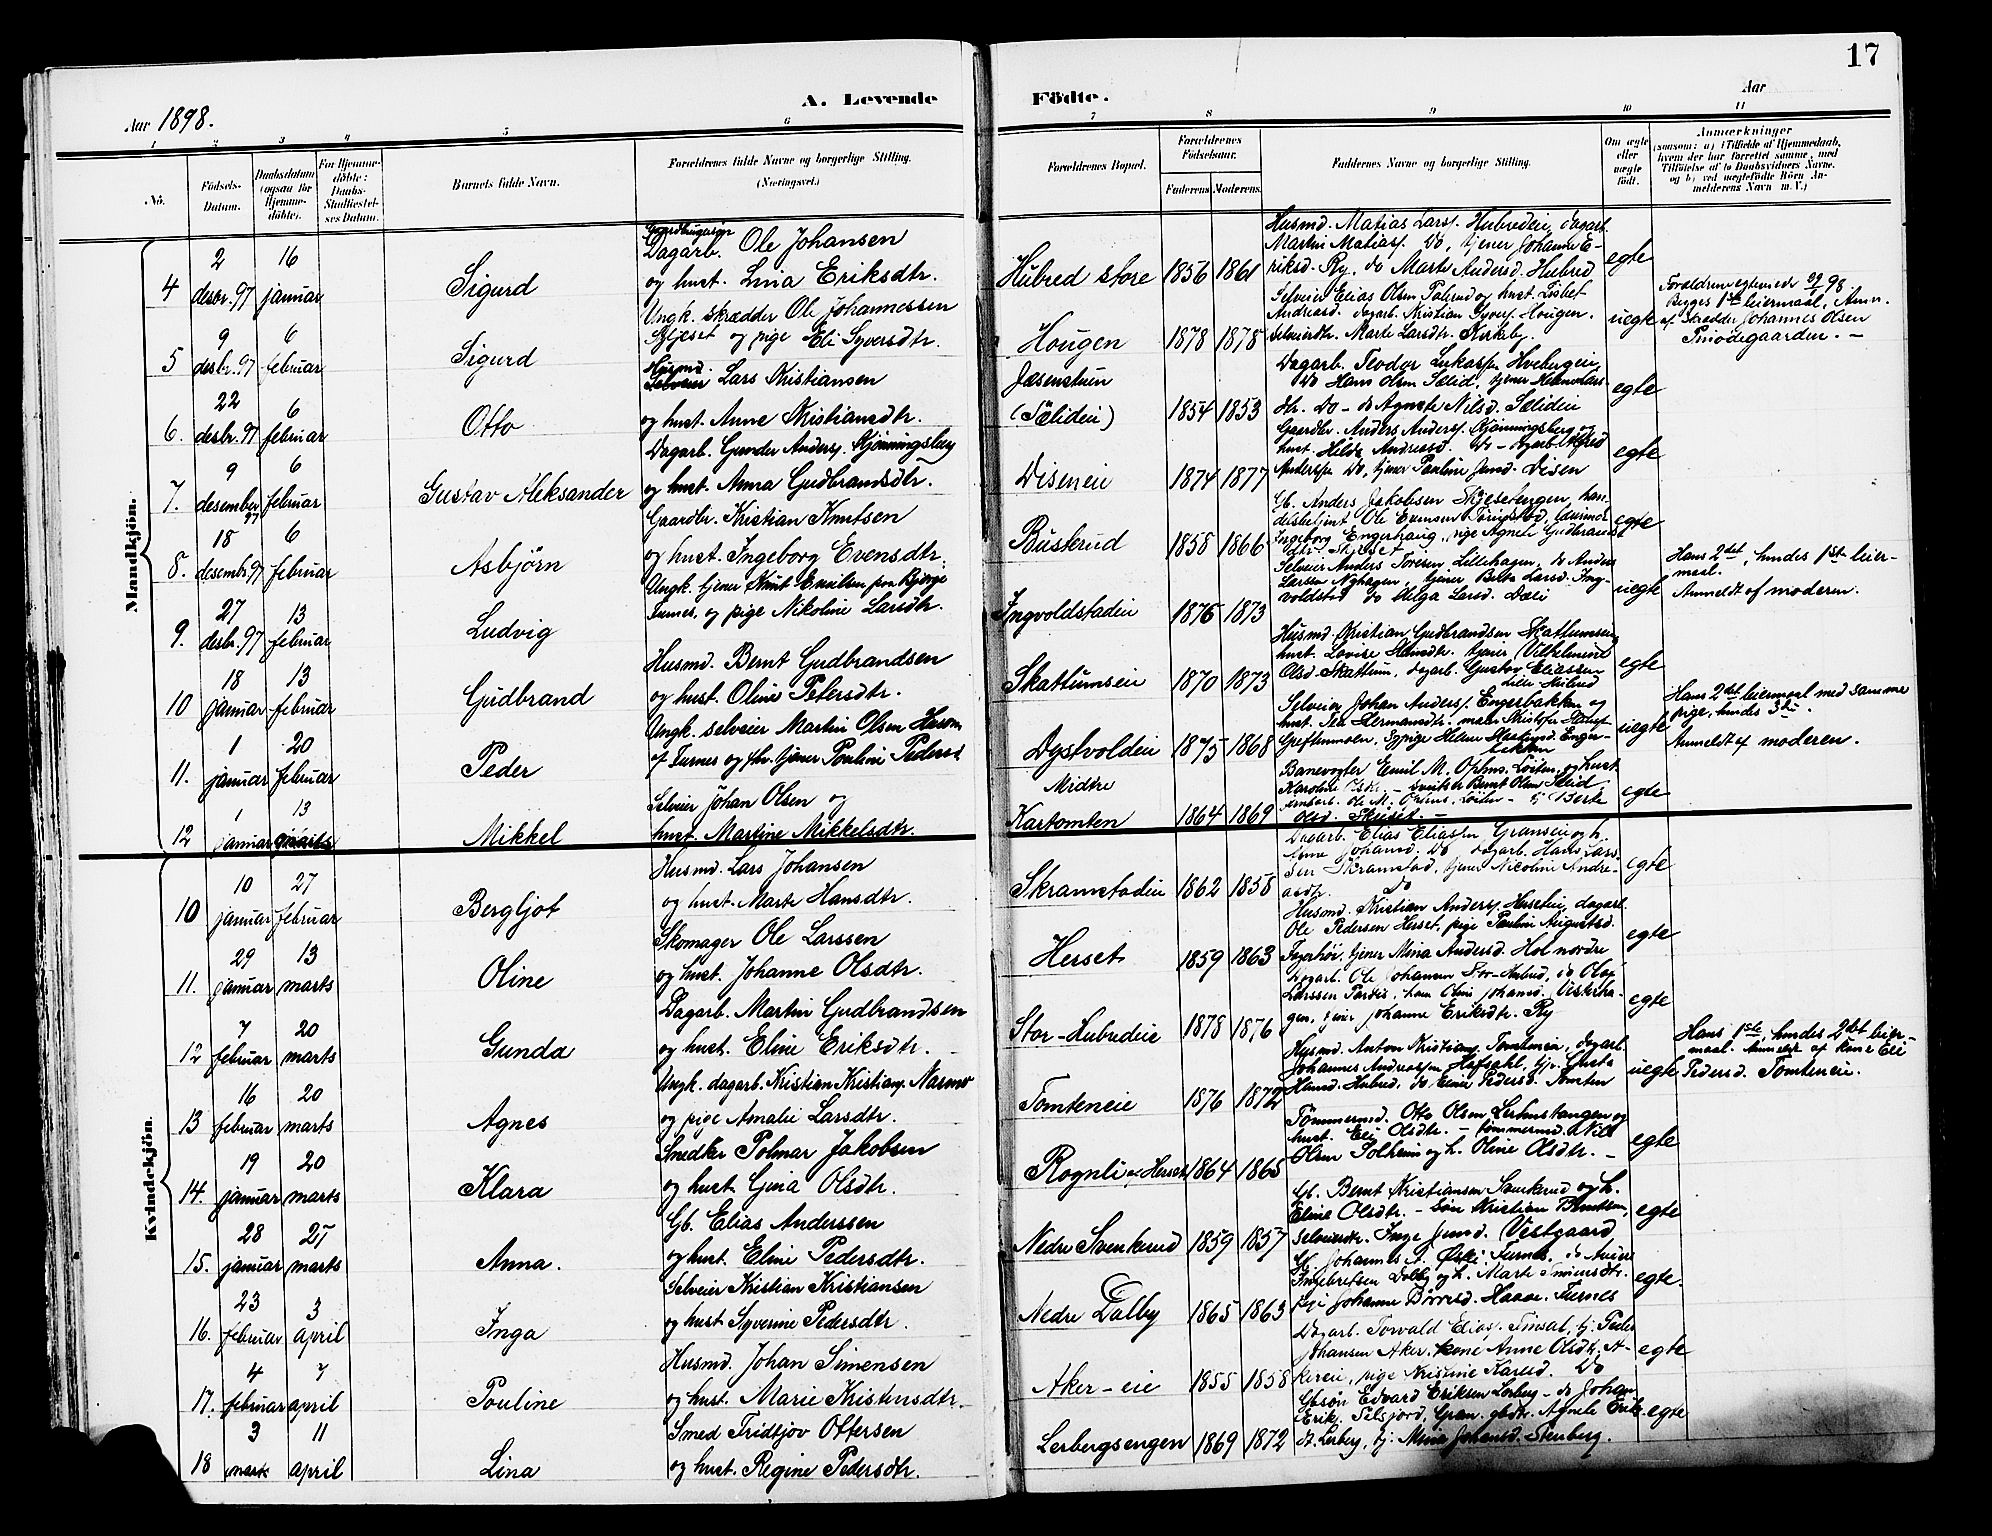 17
A. Levende Födte.
Aar 1898.
Aar
1 2 3 4 5 6 7 8 9 10 11
No.
Födsels-Datum.
Daabsdatum (ogsaa for Hjemme-döbte).
For Hjemme-döbte: Daabs-Stadfæstel-ses Datum.
Barnets fulde Navn.
Forældrenes fulde Navne og borgerlige Stilling. (Næringsvei.)
Forældrenes Bopæl.
Forældrenes Födselsaar.
Faderens Moderens
Faddernes Navne og borgerlige Stilling.
Om ægte eller uægte födt.
Anmærkninger
(saasom: a) i Tilfælde af Hjemmedaab, hvem der har forrettet samme, med Tilföielse af to Daabsvidners Navne. og b) ved uægtefödte Börn An-melderens Navn m. V.)
Mandkjön.
4 2 desbr. 97 16 januar Sigurd
Dagarb. Ole Johansen
og hust. Lina Eriksdtr.
Hubred store 1856 1861
Husmd. Matias Larss. Hubredeie, dagarb.
Martin Matiass. Do, tjener Johanne E-
riksd. Ry, do Marte Andersd. Hubred
egte
5 9 desbr. 97 6 februar Sigurd
Ungk. skrædder Ole Johannessen
og pige Eli Syversdtr.
Hougen 1878 1878
Selveier Elias Olsen og hust. Lisbet
Andreasd. dagarb. Kristian Syvers. Hougen.
selveierdtr. Marte Larsdtr. Kirkeby.
uegte
Forældrene egteviede 98
Begges 1ste leiermaal, Anm.
af Skrædder Johannes Olsen
6. 22 desbr. 97 6 februar Otto
Husmd.
Lars Kristiansen
og hust. Anne Kristiansdtr.
(Sælideie) 1854 1853
Dagarb. Teodor Lukass. Hvebergeie
Do Hans Olsen Sælid, tjener
dtr. Do – do Agnete Nilsd. Sælideie
egte
7. 9 desember 97 6 februar Gustav Aleksander
Dagarb. Gunder Anders. Kjønningsberg
og hust. Anna Gudbrandsdtr.
Diseneie 1874 1877
Gaardbr. Anders Anders. Kjønningsberg og
hust. Helde Andreasd. Do – dagarb. Alfred
Anderss. Do, tjener Pauline Jensd. Disen
egte
8. 18 desembr. 97 6 februar Asbjörn
Gaardbr. Kristian Knutsen
og hust. Ingeborg Evensdtr.
Buskerud 1858 1866
Gb. Anders Jakobsen Skjeset-engen, han-
delsbetjent Ole Evensen
Ingeborg Engerhaug, pige Agnete Gudbrands
dtr. Skjeset
egte
9. 27 desbr. 97 13 februar Ludvig
Ungk. tjener Knut Knutsen fra
Furnes, og pige Nikoline Larsdtr.
Ingvoldstadeie 1876 1873
Selveier Anders Toresen Lillehagen, do Anders
Larssen Nyhagen, tjener Berte Larsd. Ing-
voldstad do Helga Larsd. Dæli
uegte
Hans 2det, hendes 1ste leier-
maal.
Anmeldt af moderen.
10 18 januar 13 februar Gudbrand
Husmd. Bernt Gudbrandsen
og hust. Oline Petersdtr.
Skattumseie 1870 1873
Husmd. Kristian Gudbrandsen Skattumseie
hust. Lovise Hansdtr. tjener Vilhelmine
Olsd. Skattum, dagarb. Gustav Eliassen
egte
11. 1 januar 20 februar Peder
Ungk. selveier Martin Olsen
af Furnes og fhv. tjener Pauline Pedersd.
Dystvoldeie 1875 1868
Selveier Johan Anders. Engerbakken og
hust. Hermansdtr. maler Kristofer
uegte
Hans 2det leiermaal med samme
pige, hendes 3die.
Anmeldt af moderen.
12 1 januar 13 marts Mikkel
Selveier Johan Olsen og
hust. Martine Mikkelsdtr.
Midtre
Kartomten 1864 1869
Banevogter Emil M. Ophus. Löiten, og hust.
Karoline Olsdtr. – snedker Bernt Olsen Sælid,
Olsd. Skjeset. –
egte
Kvindekjön.
10 10 januar 27 februar Bergljot
Husmd. Lars Johansen
og hust. Marte Hansdtr.
Skramstadeie 1862 1858
Dagarb. Elias Eliassen Granseie og h.
Johansd. Do dagarb. Hans Lars-
sen Skramstad, tjener Nicoline Andre-
asdtr. Do
egte
11. 29 januar 13 marts Oline
Skomager Ole Larssen
og hust. Johanne Olsdtr.
Herset 1859 1863
Husmd. Kristian Anders. Herseteie, dagarb.
Ole Pedersen Herset, pige Pauline Augustsd.
Fagerhöi, tjener Mina Andersd. Hol nordre
egte
12 7 februar 20 marts Gunda
Dagarb. Martin Gudbrandsen
og hust. Eline Eriksdtr.
Stor-Hubredeie 1878 1876
Dagarb. Ole Johansen Stor-Hubred, do Olaf
Larssen, Oline Johansd. Vesterha-
gen, tjener Johanne Eriksdtr. Ry
egte
13 16 februar 20 marts Agnes
Ungk. dagarb. Kristian Kristians. Narmo
og pige Amalie Larsdtr.
Tomteneie 1876 1872
Husmd. Anton Kristians. Tomteneie, dagarb.
Johannes Andreassen Hafsahl, tj.
Hansd. Hubred, do Eline Pedersd. Tomten
uegte
Hans 1ste, hendes 2det leier-
maal. Anmeldt af Kone Eli
Pedersd. Tomteneie.
14. 19 januar 20 marts Klara
Snedker Polmar Jakobsen
og hust. Gina Olsdtr.
Rognli af Herset 1864 1865
Tömmermd. Otto Olsen Lerkestangen og
hust. Eli Olsdtr. – tömmermd. Nils
Olsen Solheim og h. Oline Olsdtr. –
egte
15. 28 januar 25 marts Anna.
Gb. Elias Anderssen
og hust. Eline Pedersdtr.
Nedre Svenkerud 1859 1857
Gb. Bernt Kristiansen Svenkerud og h.
Eline Olsdtr. – Sön Kristian Berntsen,
selveierdtr. Inge Jensd. Vestgaard
egte
16. 23 februar 3 april Inga
Selveier Kristian Kristiansen
og hust Syverine Pedersdtr.
Nedre Dalby 1865 1863
Gb. Johannes P. Furnes. do
Ingebretsen Dalby og h. Marte Simensdtr.
pige Johanne Börresd. Furnes
egte.
17. 4 februar 7 april Pouline
Husmd. Johan Simensen
og hust. Marie Kristensdtr.
Aker-eie 1855 1858
Dagarb. Torvald Elias. Finsal, tj. Peder
Johansen Aker, kone Anne Olsdtr. A-
kereie, pige Kristine Karlsd. Do
egte
18 3 marts 11 april Lina
Smed Fridtjov Ottersen
og hust. Regine Pedersdtr.
Lerbergsengen 1869 1872
Gbsön Edvard Eriksen Lerberg – do Johan
Erik. Gran. gbdtr. Agnete Erik-
dt. Lerberg, tj. Mina Johansd. Stenberg.
egte